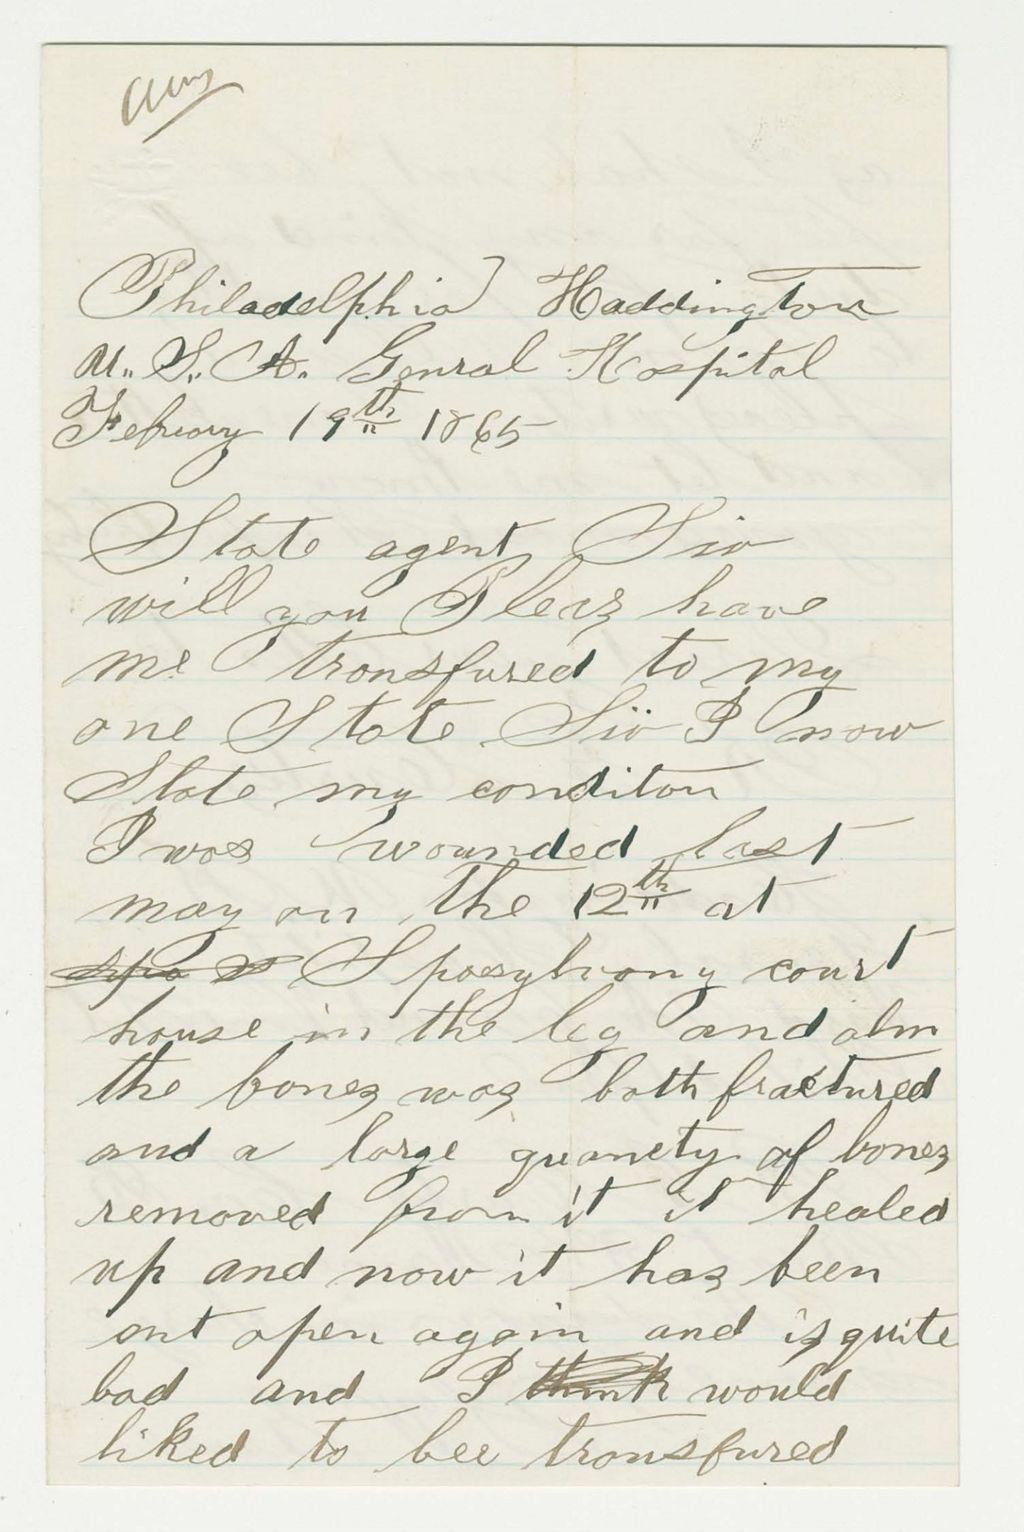 Philadelphia] Haddington
U.. S.. A.. Genral Hospital
Febuary 19th 1865
State agent, Sir
will you Pleas have
me transfured to my
one State Sir I now
State my conditon
I was wounded last
may on the 12th at
Sposylvany court
house in the leg and
the bones was both fractured
and a large quanety of bones
removed from it it healed
up and now it has been
open again and is quite
bad and I think would
liked to bee transfured